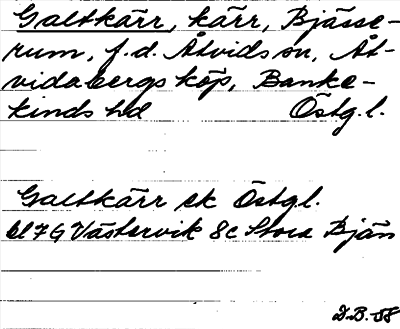 Galtkärr, kärr, Bjässe-
rum, f.d. Åtvids sn, Åt-
vidabergs köp, Banke-
kinds hd Östg.l.
Galtkärr ek Östgl.
bl 7G Västervik 8c Stora Bjän
D.B. 58